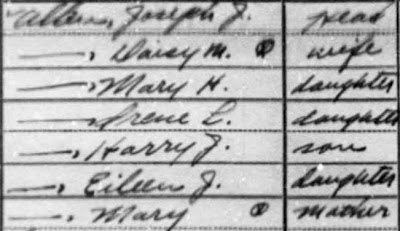 Joseph J. Head
—, Daisy M. wife
—, Mary H. daughter
—, Irene L. daughter
—, Harry J. son
—, Eileen J. daughter
—, Mary mother